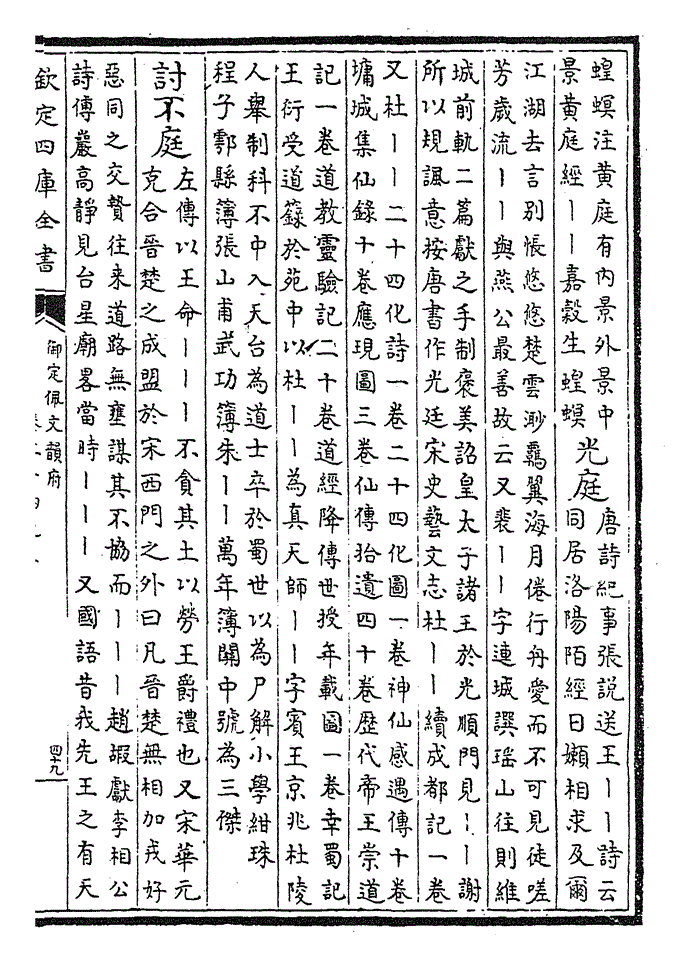 蝗螟注黄庭有内景外景中
景黄庭經丨丨嘉穀生蝗螟
光庭
唐詩紀事張説送王丨丨詩云
同居洛陽陌經日嬾相求及爾
江湖去言别悵悠悠楚雲渺羈翼海月倦行舟愛而不可見徒嗟
芳歲流丨丨與燕公最善故云又裴丨丨字連城譔瑶山往則維
城前軌二篇獻之手制褒美詔皇太子諸王於光順門見丨丨謝
所以規諷意按唐書作光廷宋史藝文志杜丨丨續成都記一卷
又杜丨丨二十四化詩一卷二十四化圖一卷神仙感遇傳十卷
墉城集仙錄十卷應現圖三卷仙傳拾遺四十卷歴代帝王崇道
記一卷道教靈驗記二十卷道經降傳世授年載圖一卷幸蜀記
王衍受道籙於苑中以杜丨丨為真天師丨丨字賓王京兆杜陵
人舉制科不中入天台為道士卒於蜀世以為尸解小學紺珠
程子鄠縣簿張山甫武功簿朱丨丨萬年簿關中號為三傑
討不庭
左傳以王命丨丨丨不貪其土以勞王爵禮也又宋華元
克合晉楚之成盟於宋西門之外曰凡晉楚無相加戎好
惡同之交贄往来道路無壅謀其不協而丨丨丨趙嘏獻李相公
詩傅巖高静見台星廟畧當時丨丨丨又國語昔我先王之有天
欽定四庫全書
御定佩文韻府
四十九